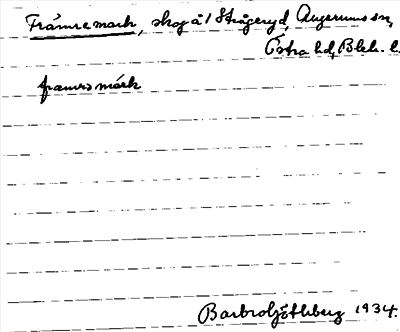 Främre mark, skog å 1 Stångeryd, Augerums sn,
Östra hd, Blek. l.
framrs märk
Barbro Ljöthberg 1934.